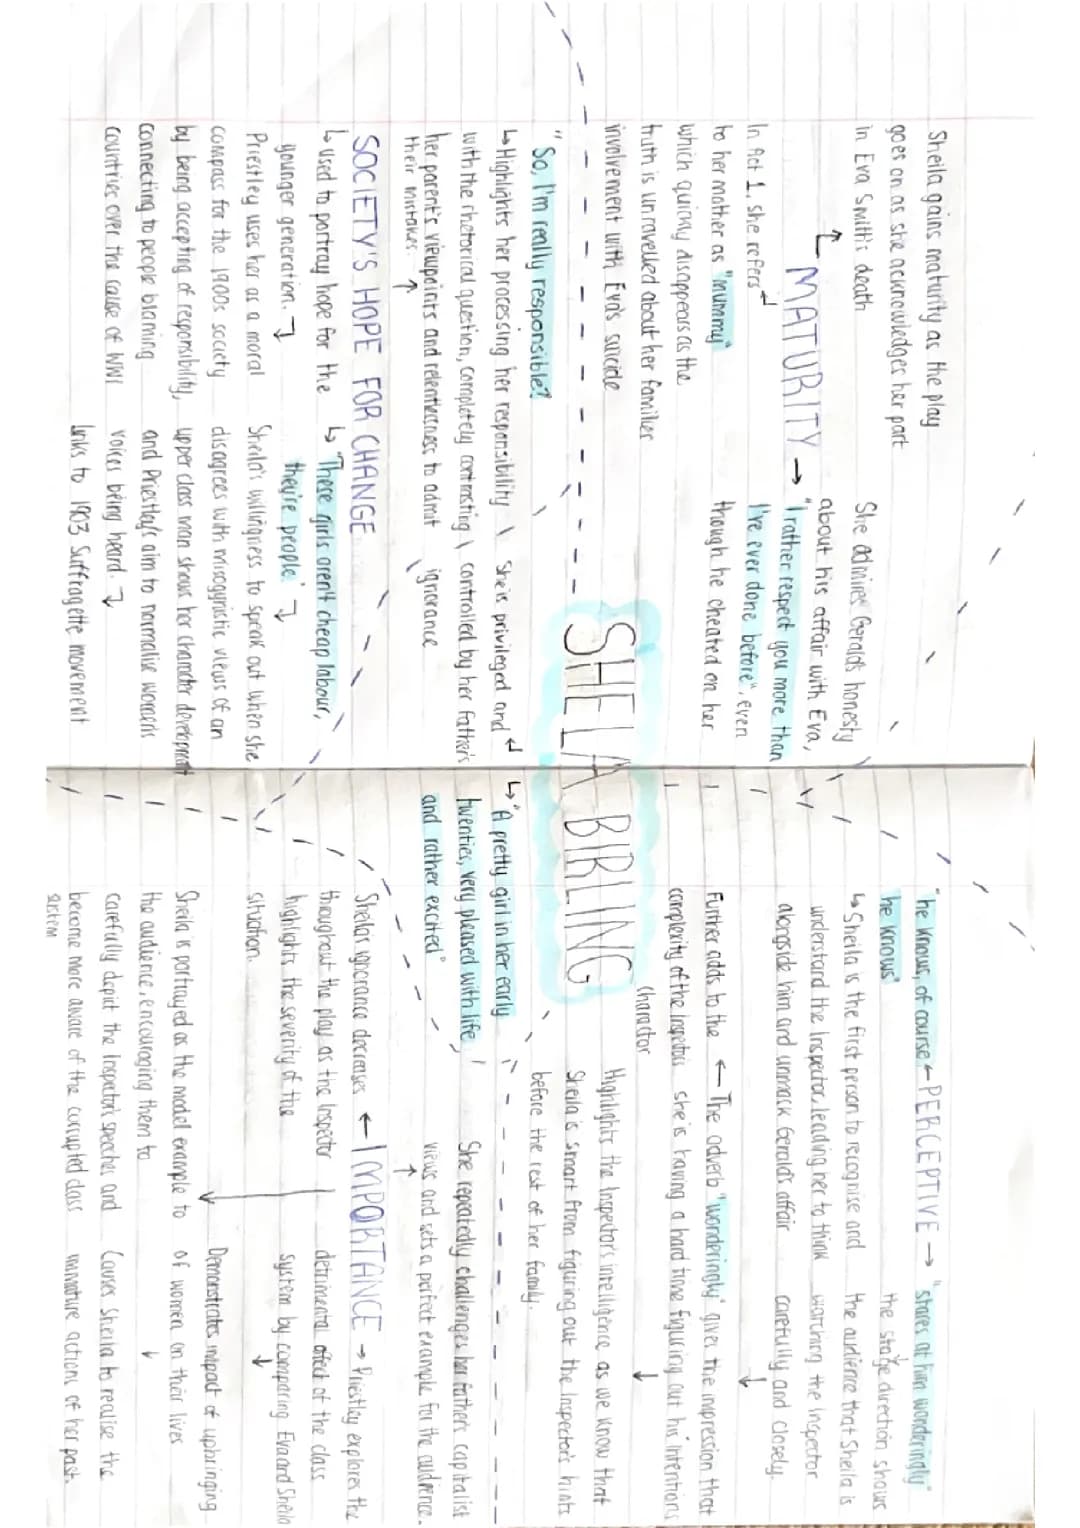 SHEILA BIRLING
Sheila gains maturity as the play
goes on as she acknowledges her part
in Eva Smith's death
↳ MATURITY →
In Act 1, she refers
to her mother as "mummy"
which quickly disappears as the
truth is unravelled about her familier
involvement with Eva's suicide
She admires Gerald's honesty
about his affair with Eva,
"I rather respect you more than
I've ever done before", even
though he cheated on her
"he knows, of course ← PERCEPTIVE → "stares at him wonderingly"
he knows"
↳ Sheila is the first person to recognise and
understand the Inspector, leading her to think
alongside him and unmask Gerald's affair
the stage direction shows
the audience that Sheila is
watching the Inspector
carefully and closely.
Further adds to the ← The adverb "wonderingly" gives the impression that
complexity of the Inspector's she is having a hard time figuring out his intentions
character
Highlights the Inspector's intelligence as we know that
Sheila is smart from figuring out the Inspector's hints
before the rest of her family.
"So, I'm really responsible?
↳ Highlights her processing her responsibility
with the rhetorical question, completely contrasting
her parent's viewpoints and relentlessness to admit
their mistakes.
She is privileged and
controlled by her father's
ignorance
↳ "A pretty girl in her early
twenties, very pleased with life
and rather excited"
SOCIETY'S HOPE FOR CHANGE
↳ used to portray hope for the
younger generation.
Priestley uses her as a moral
compass for the 1900s society
by being accepting of responsibility,
connecting to people blaming
countries over the cause of WW1
↳ "These girls aren't cheap labour,
they're people"
Sheila's willingness to speak out when she
disagrees with misogynistic views of an
upper class man shows her character development
and Priestley's aim to normalise women's
voices being heard.
links to 1903 Suffragette movement
She repeatedly challenges her father's capitalist
views and sets a perfect example for the audience.
Sheila's ignorance decreases ← IMPORTANCE → Priestley explores the
throughout the play as the Inspector
highlights the severity of the
situation.
detrimental effect of the class
system by comparing Eva and Sheila
Demonstrates impact of upbringing
of women on their lives
Sheila is portrayed as the model example to
the audience, encouraging them to
carefully depict the Inspector's speeches and
become more aware of the corrupted class
system
Causes Sheila to realise the
immature actions of her past.